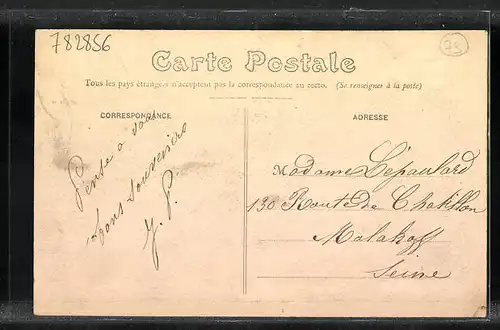 782856
78
Carte Postale
Tous les pays étrangers n'acceptent pas la correspondance au recto. (Se renseigner à la poste)
CORRESPONDANCE
ADRESSE
Pense a vous
Bons Souvenirs
J. P.
Madame Lépaulard
130 Route de Chatillon
Malakoff
Seine